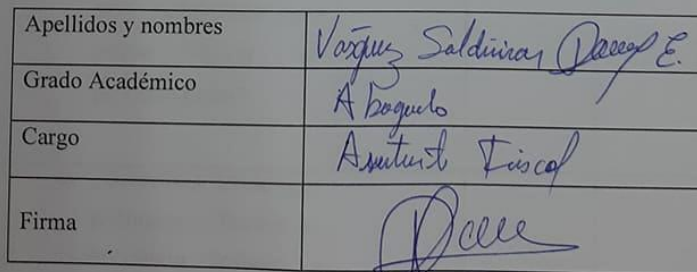 Apellidos y nombres Vásquez Saldívar E.
Grado Académico Abogado
Cargo Asistente Fiscal
Firma